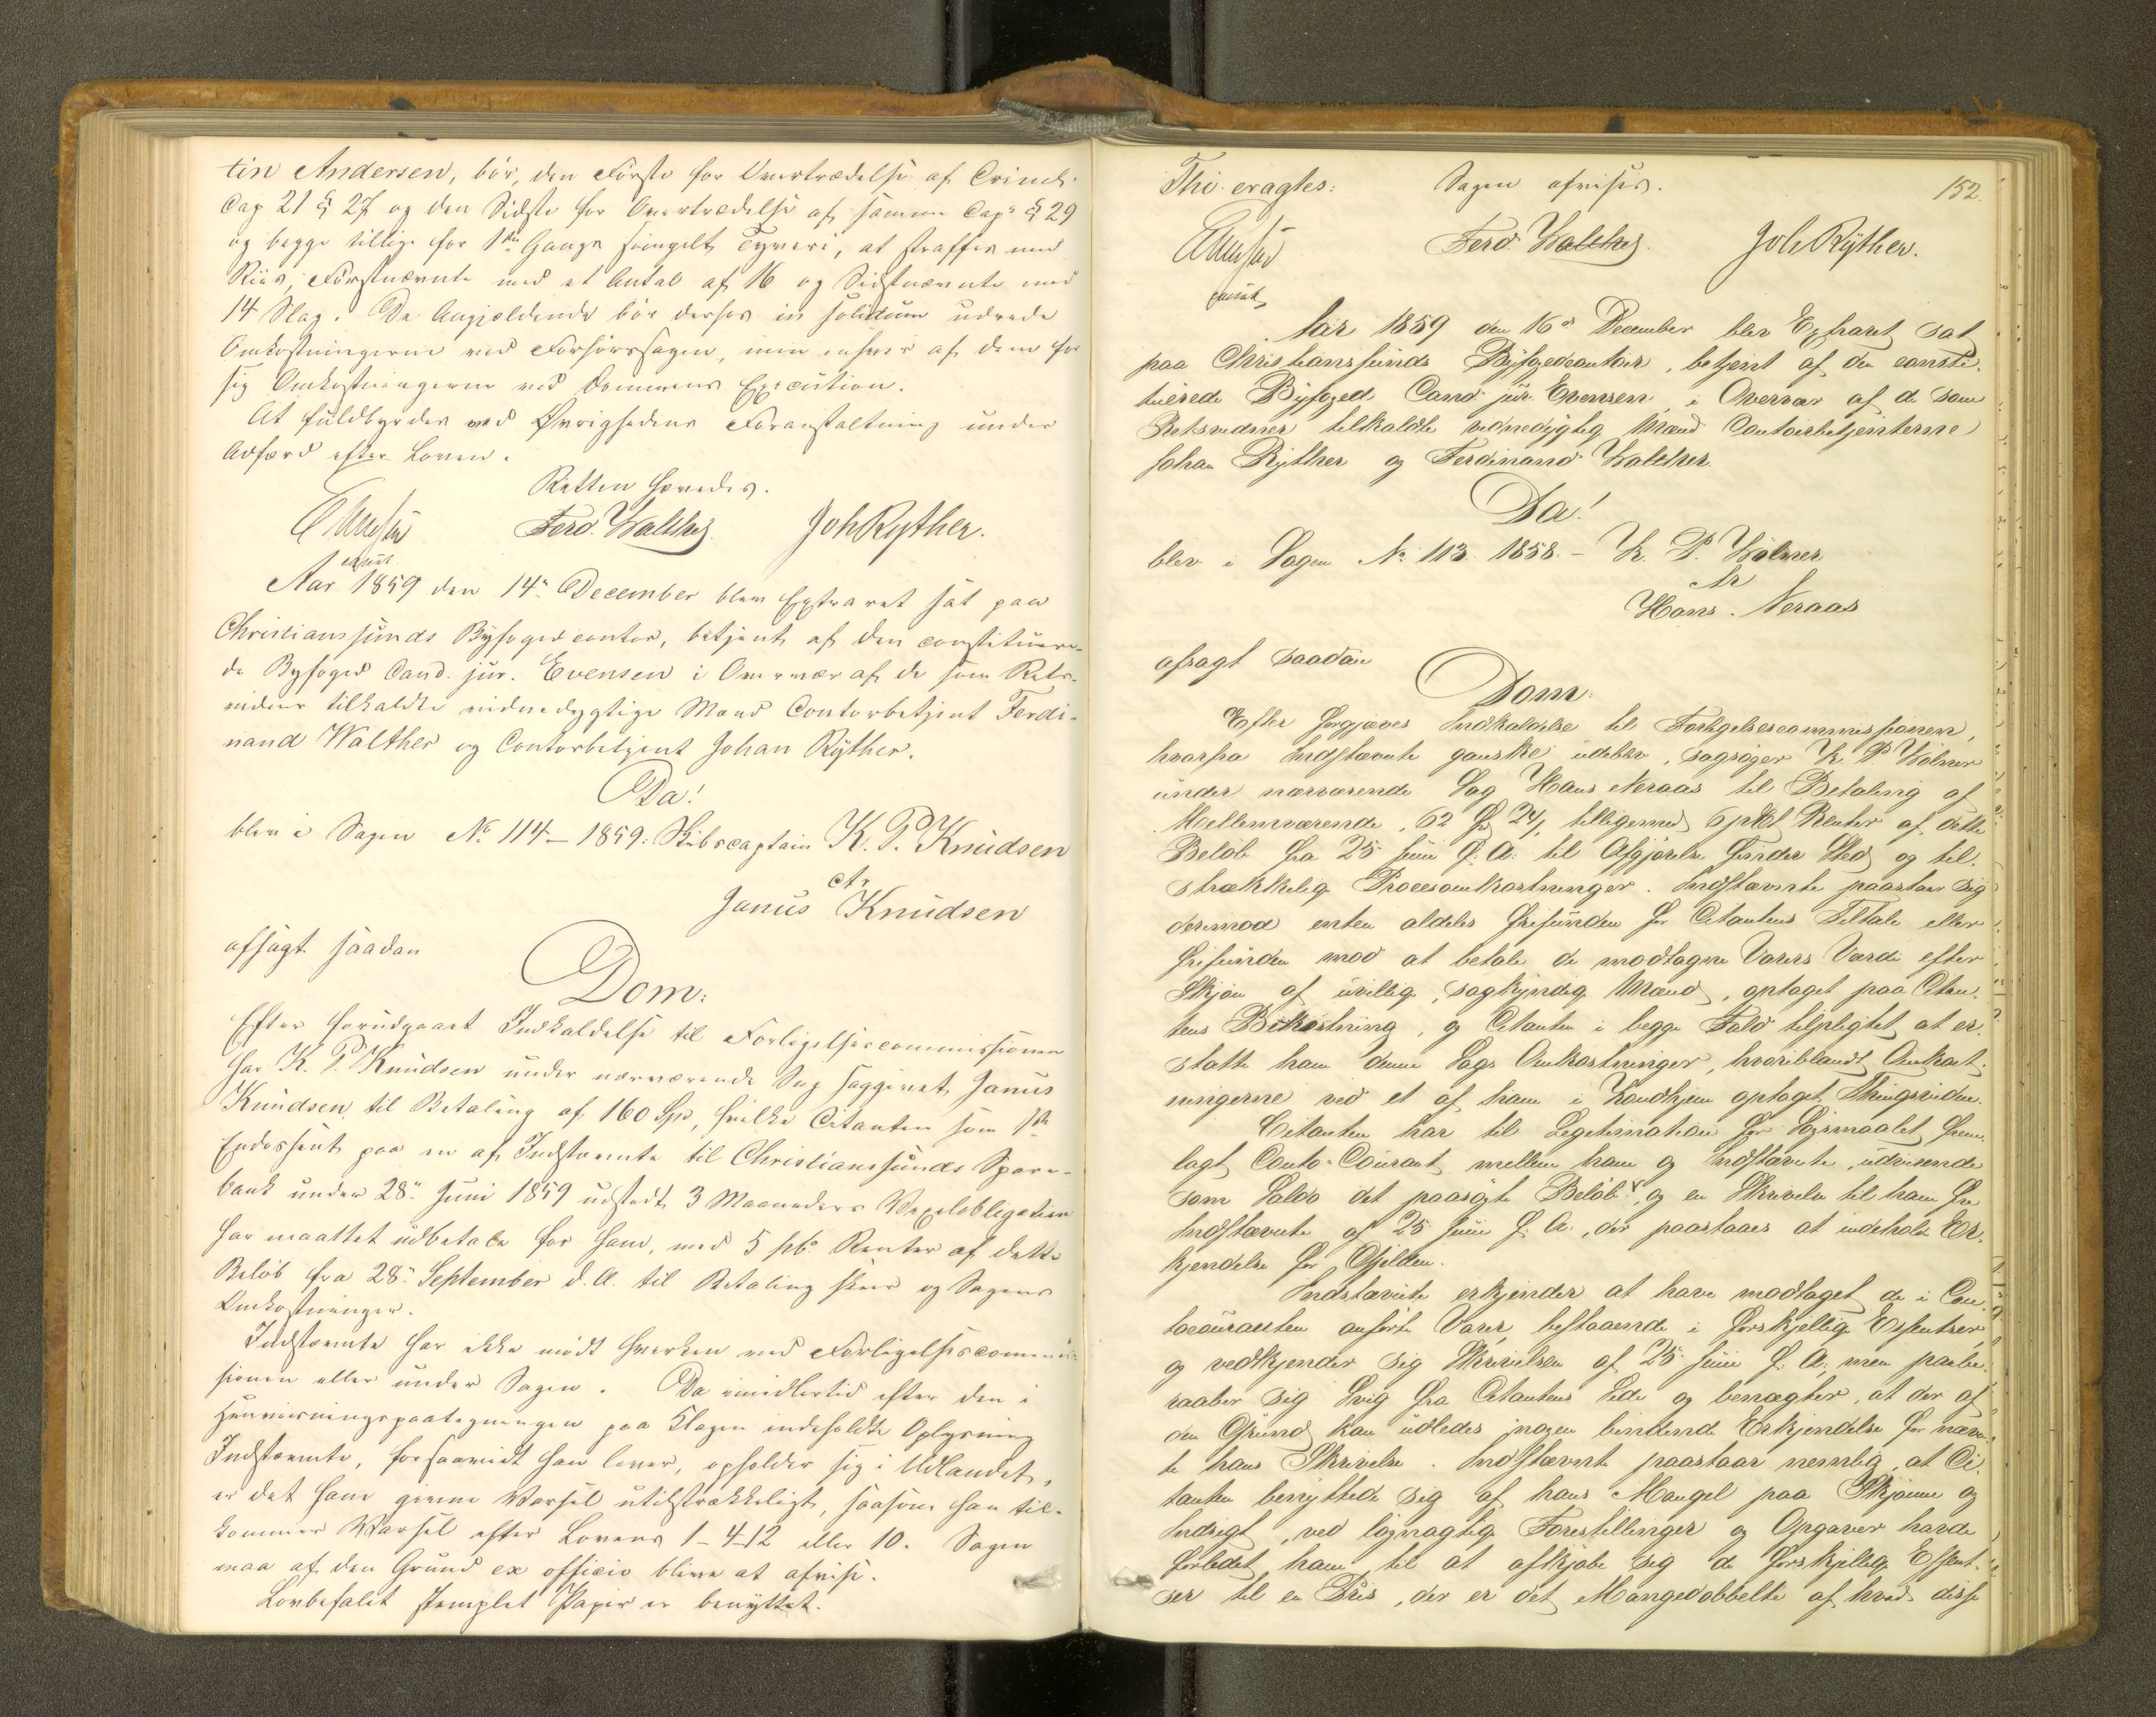 tin Andersen, bör, den Förste for Overtrædelse af Crimls
Cap 21 § 27 og den Sidste for Overtrædelse af samme Cap: § 29
og begge tillige for 1ste Gangs simpelt Tyveri, at straffes med
Riis, Förstnævnte med et Antal af 16 og Sidstnævnte med
14 Slag. De Angjældende bör derhos in solidum udrede
Omkostningerne ved Forhörssagen, men enhver af dem for
sig Omkostningerne ved Dommens Execution.
At fuldbyrdes ved Øvrighedens Foranstaltning under
Adfærd efter Loven.
Retten hævedes.
Evensen Ferd. Walther Joh Ryther.
const.
Aar 1859 den 14de December blev Extraret sat paa
Christianssunds Byfogedcontor, betjent af den constituere-
de Byfoged Cand. jur. Evensen i Overvær af de som Rets-
vidner tilkaldte vidnedygtige Mænd Contorbetjent Ferdi-
nand Walther og Contorbetjent Johan Ryther.
Da!
blev i Sagen No 114 - 1859: Skibscaptain K. P. Knudsen
ctr
Janus Knudsen
afsagt saadan
Dom:
Efter forudgaaet Indkaldelse til Forligelsescommissionen
har K. P. Knudsen under nærværende Sag saggivet Janus
Knudsen, til Betaling af 160 Spd, hvilke Citanten som 1ste
Endossent paa en af Indstævnte til Christianssunds Spare-
bank under 28de Juni 1859 udstedt 3 Maaneders Vexelobligation
har maattet udbetale for ham, med 5 pCto Renter af dette
Belöb fra 28de September d. A. til Betaling skeer og Sagens
Omkostninger.
Indstævnte har ikke mödt hverken ved Forligelsescommis-
sionen eller under Sagen. Da imidlertid efter den i
Henviisningspaategningen paa Klagen indeholdte Oplysning
Indstævnte, forsaavidt han lever, opholder sig i Udlandet,
er det ham givne Varsel utilstrækkeligt, saasom han til-
kommer Varsel efter Lovens 1-4-12 eller 10. Sagen
maa af den Grund ex officio blive at afvise.
Lovbefalet stemplet Papir er benyttet.
Thi eragtes:
Sagen afvises.
152.
Evensen Ferd. Walther Joh Ryther.
const
Aar 1859 den 16de December blev Extraret sat
paa Christianssunds Byfogedcontoir, betjent af den consti-
tuerede Byfoged Cand jur. Evensen i Overvær af de som
Retsvidner tilkaldte vidnedygtig Mænd Contoirbetjenterne
Johan Ryther og Ferdinand Walther
Da!
blev i Sagen No 113 1858. - K. P. Volmer
ctr
Hans Neraas
afsagt saadan
Dom:
Efter forgjæves Indkaldelse til Forligelsescommissionen,
hvorfra Indstævnte ganske udeblev, sagsøger K. P. Volmer
under nærværende Sag Hans Neraas til Betaling af
Mellemværende, 62 Spd 24 s, tilligemed 6 pCt Renter af dette
Belöb fra 25 Juni f. A. til Afgjörelse finder Sted og til-
strækkelig Procesomkostninger. Indstævnte paastaar sig
derimod enten aldeles frifunden for Citantens Tiltale eller
frifunden mod at betale de modtagne Varers Værdi efter
Skjön af uvillig, sagkyndig Mænd, optaget paa Citan-
tens Bekostning, og Citanten i begge Fald tilpligtet at er-
statte ham denne Sags Omkostninger, hvoriblandt Omkost-
ningerne ved et af ham i Trondhjem optaget Thingsvidne.
Citanten har til Legitimation for Sögsmaalet frem-
lagt Conto-Courant mellem ham og Indstævnte, udvisende
som Saldo det paasögte Belöb, og en Skrivelse til ham fra
Indstævnte af 25 Juni f. A., der paastaaes at indeholde Er-
kjendelse for Gjelden.
Indstævnte erkjender at have modtaget de i Con-
tocouranten anförte Varer, bestaaende i forskjellige Essentser,
og vedkjender sig Skrivelsen af 25 Juni f. A., men paabe-
raaber sig Svig fra Citantens Side og benægter, at der af
den Grund kan udledes nogen bindende Erkjendelse for nævn-
te hans Skrivelse. Indstævnte paastaar nemlig, at Ci-
tanten benyttede sig af hans Mangel paa Skjönne og
Indsigt, ved lögnagtig Forestillinger og Opgaver havde
forledet ham til at afkjöbe sig de forskjellige Essent-
ser til en Priis, der er det Mangedobbelte af hvad disse